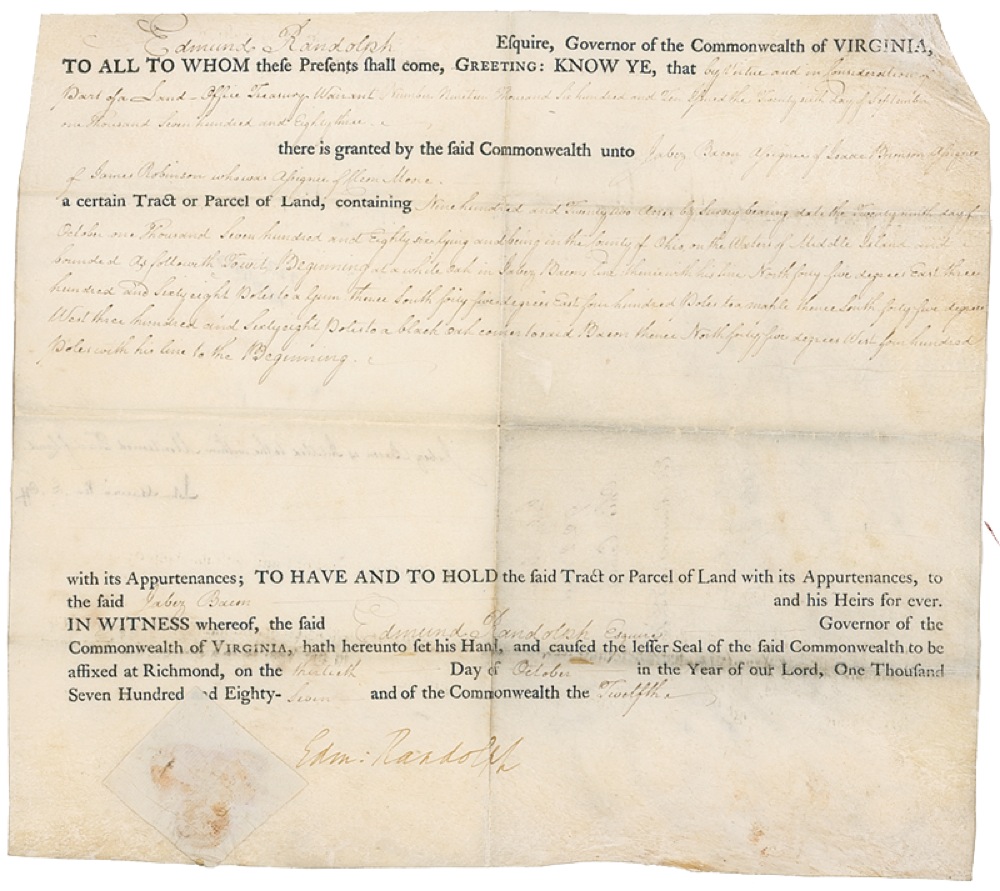 Edmund Randolph Esquire, Governor of the Commonwealth of VIRGINIA,
TO ALL TO WHOM theſe Preſents ſhall come, GREETING: KNOW YE, that by Virtue and in Consideration of
Part of a Land-Office Treasury Warrant Number Nineteen Thousand Six hundred and Ten Issued the Twenty sixth Day of September
one thousand Seven hundred and Eighty three.
there is granted by the ſaid Commonwealth unto Jabez Bacon Aſsignee of Isaac Brunson Aſsignee
of James Robinson who was Aſsignee of Moore.
a certain Tract or Parcel of Land, containing Nine hundred and Twenty two Acres by Survey bearing date the Twenty ninth day of
October one Thousand Seven hundred and Eighty six lying and being in the County of Ohio on the Waters of Meddle Island and
bounded As followeth Towit, Beginning at a white oak in Jabez Bacons line thence with his line North forty five degrees East three
hundred and Sixty eight Poles to a Gum thence South forty five degrees East four hundred Poles to a mahle thence South forty five degrees
West three hundred and Sixty eight Poles to a black oak corner to said Bacon thence North forty five degrees West four hundred
Poles with his line to the Beginning.
with its Appurtenances; TO HAVE AND TO HOLD the ſaid Tract or Parcel of Land with its Appurtenances, to
the ſaid Jabez Bacon and his Heirs for ever.
IN WITNESS whereof, the ſaid Edmund Randolph Esquire Governor of the
Commonwealth of VIRGINIA, hath hereunto ſet his Hand, and cauſed the leſſer Seal of the ſaid Commonwealth to be
affixed at Richmond, on the thirtieth Day of October in the Year of our Lord, One Thouſand
Seven Hundred and Eighty- Seven and of the Commonwealth the Twelfth
Edm: Randolph